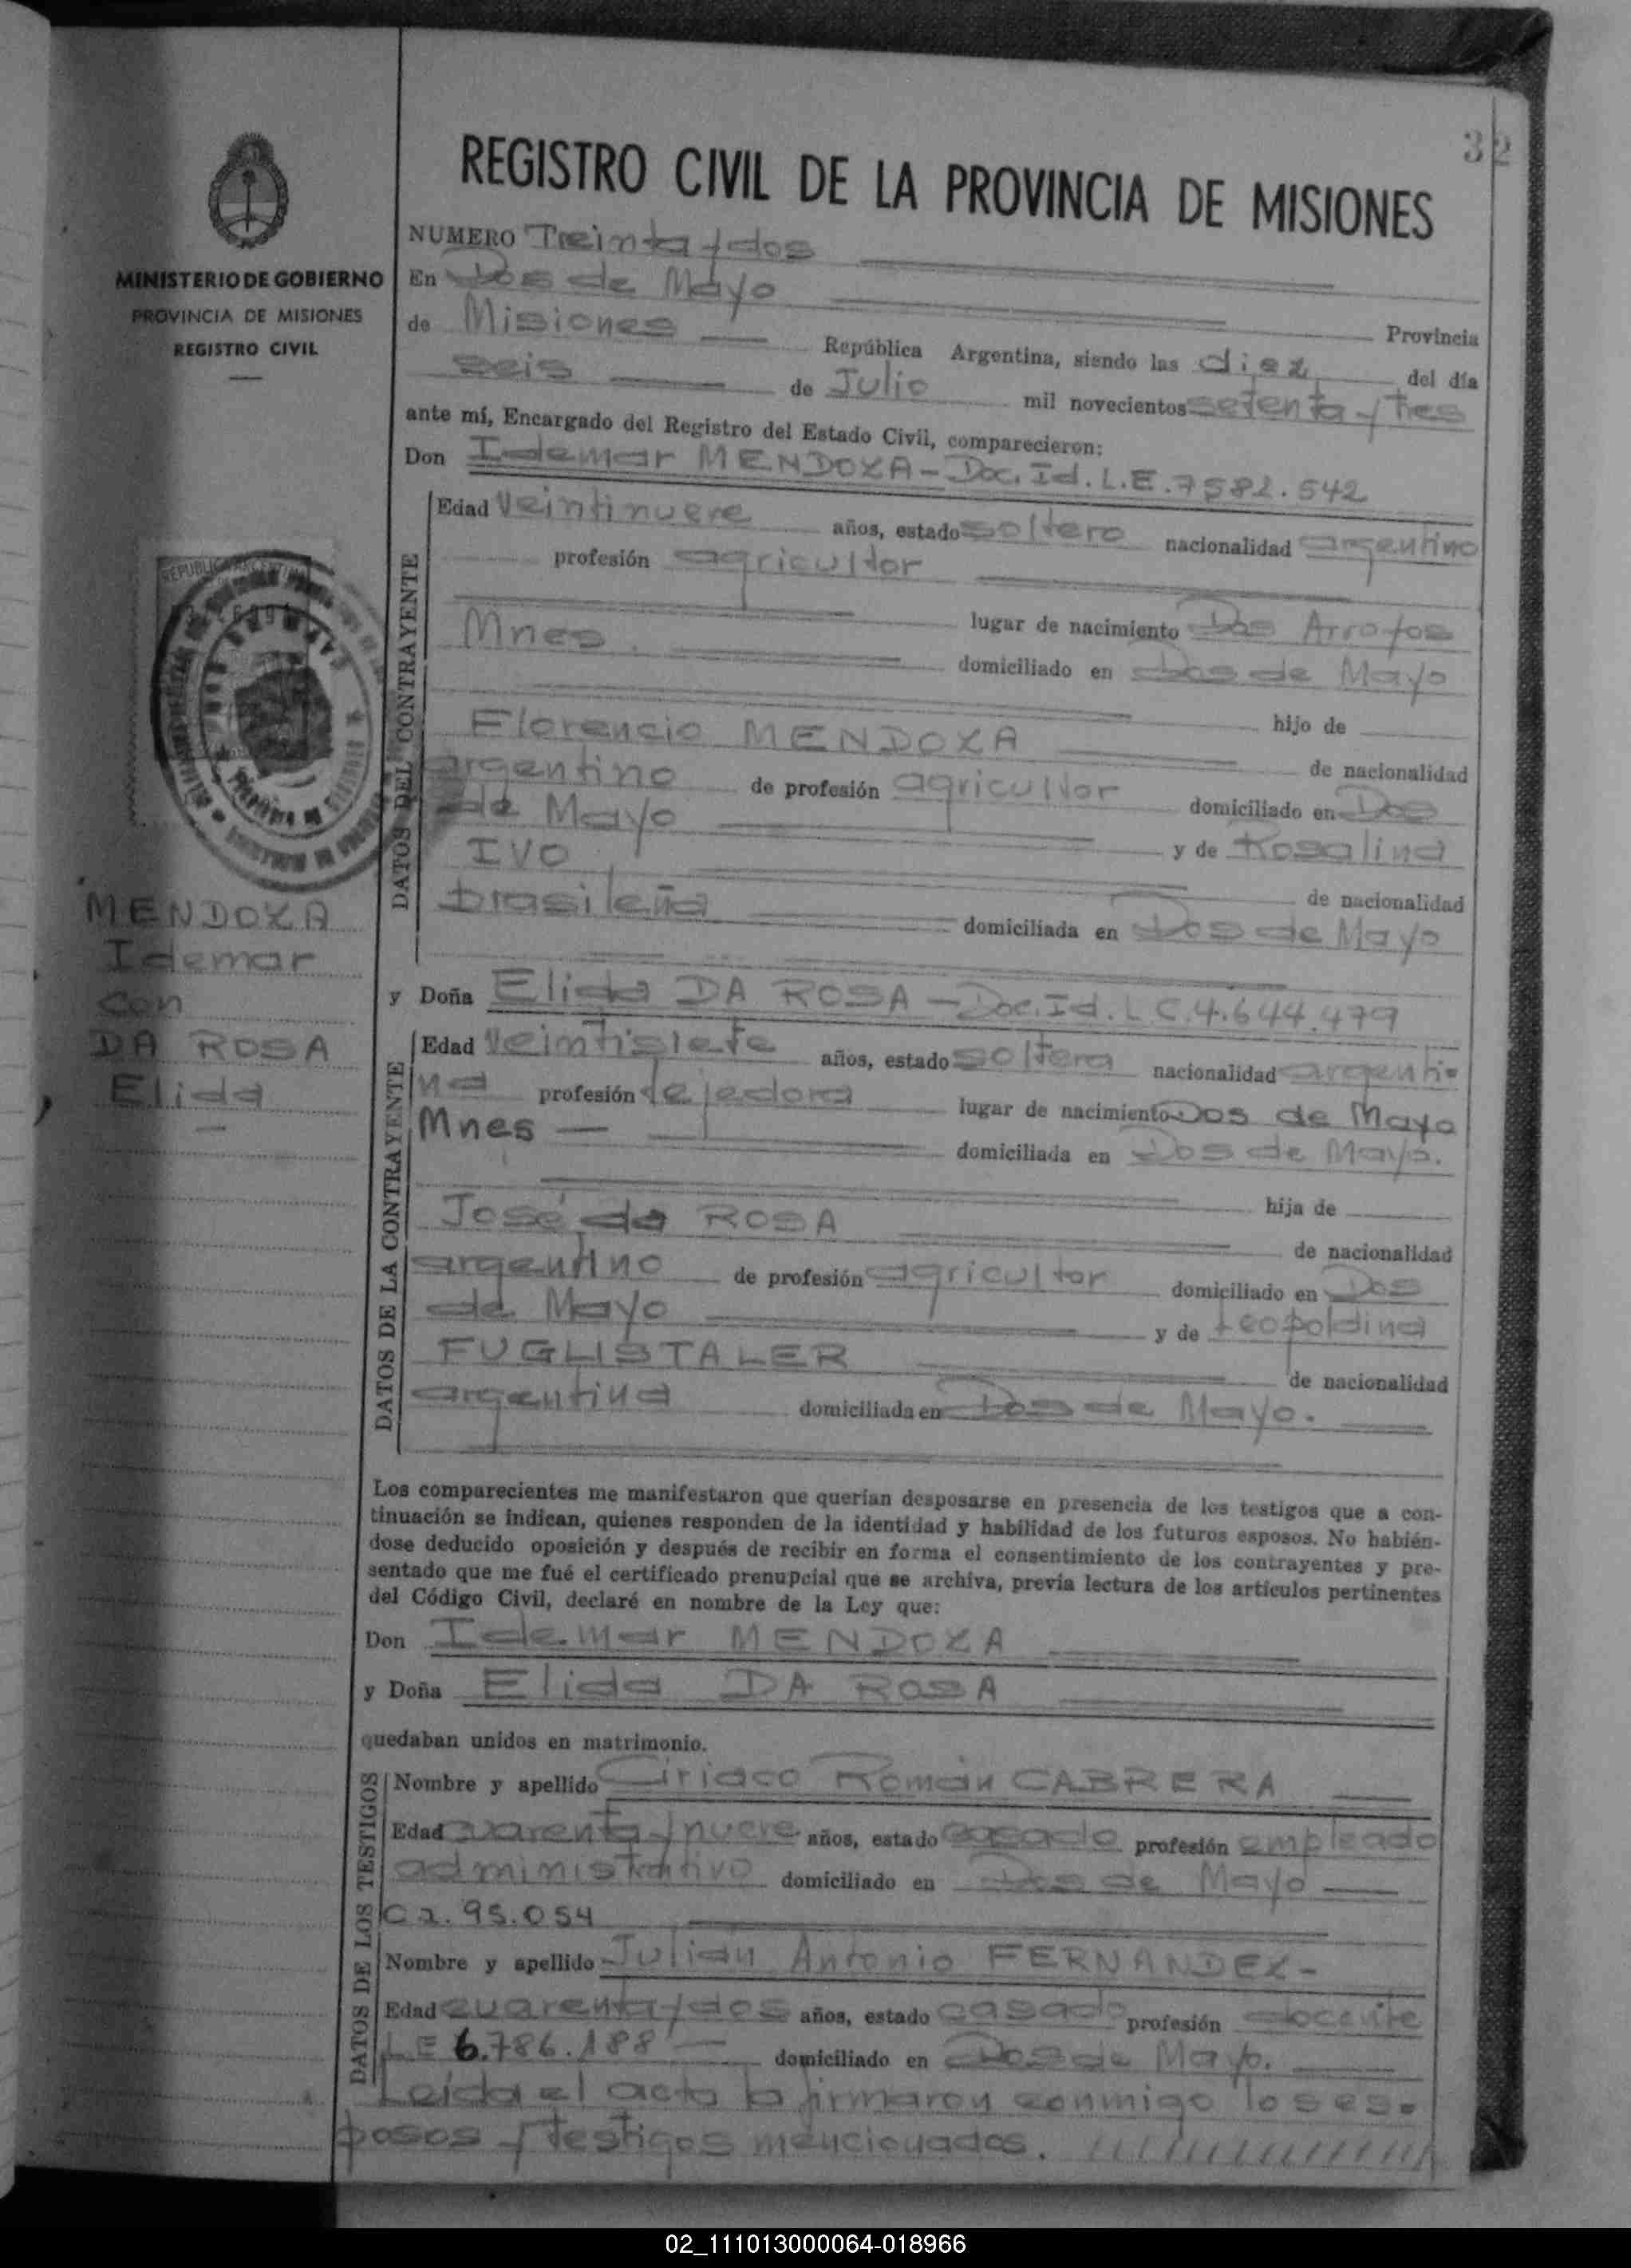 32
REGISTRO CIVIL DE LA PROVINCIA DE MISIONES
MINISTERIO DE GOBIERNO
PROVINCIA DE MISIONES
REGISTRO CIVIL
NUMERO Treinta y dos
En Dos de Mayo Provincia
de Misiones República Argentina, siendo las diez del día
seis de Julio mil novecientos setenta y tres
ante mí, Encargado del Registro del Estado Civil, comparecieron:
Don Idemar MENDOZA - Doc. Id. L.E. 7582.542
DATOS DEL CONTRAYENTE
Edad veintinueve años, estado soltero nacionalidad argentino
profesión agricultor
lugar de nacimiento Dos Arroyos
Mnes. domiciliado en Dos de Mayo
hijo de
Florencio MENDOZA de nacionalidad
argentino de profesión agricultor domiciliado en Dos
de Mayo y de Rosalina
IVO de nacionalidad
brasileña domiciliada en Dos de Mayo
MENDOZA
Idemar
con
DA ROSA
Elida
y Doña Elida DA ROSA - Doc. Id. L C. 4.644.479
DATOS DE LA CONTRAYENTE
Edad veintisiete años, estado soltera nacionalidad argenti-
na profesión tejedora lugar de nacimiento Dos de Mayo
Mnes domiciliada en Dos de Mayo.
hija de
José da ROSA de nacionalidad
argentino de profesión agricultor domiciliado en Dos
de Mayo y de Leopoldina
FUGLISTALER de nacionalidad
argentina domiciliada en Dos de Mayo.
Los comparecientes me manifestaron que querían desposarse en presencia de los testigos que a con-
tinuación se indican, quienes responden de la identidad y habilidad de los futuros esposos. No habién-
dose deducido oposición y después de recibir en forma el consentimiento de los contrayentes y pre-
sentado que me fué el certificado prenupcial que se archiva, previa lectura de los artículos pertinentes
del Código Civil, declaré en nombre de la Ley que:
Don Idemar MENDOZA
y Doña Elida DA ROSA
quedaban unidos en matrimonio.
DATOS DE LOS TESTIGOS
Nombre y apellido Ciriaco Román CABRERA
Edad cuarenta y nueve años, estado casado profesión empleado
administrativo domiciliado en Dos de Mayo
C 2. 95.054
Nombre y apellido Julián Antonio FERNANDEZ -
Edad cuarenta y dos años, estado casado profesión docente
LE 6.786.188 domiciliado en Dos de Mayo.
Leída el acta la firmaron conmigo los es-
posos y testigos mencionados.
02_111013000064-018966